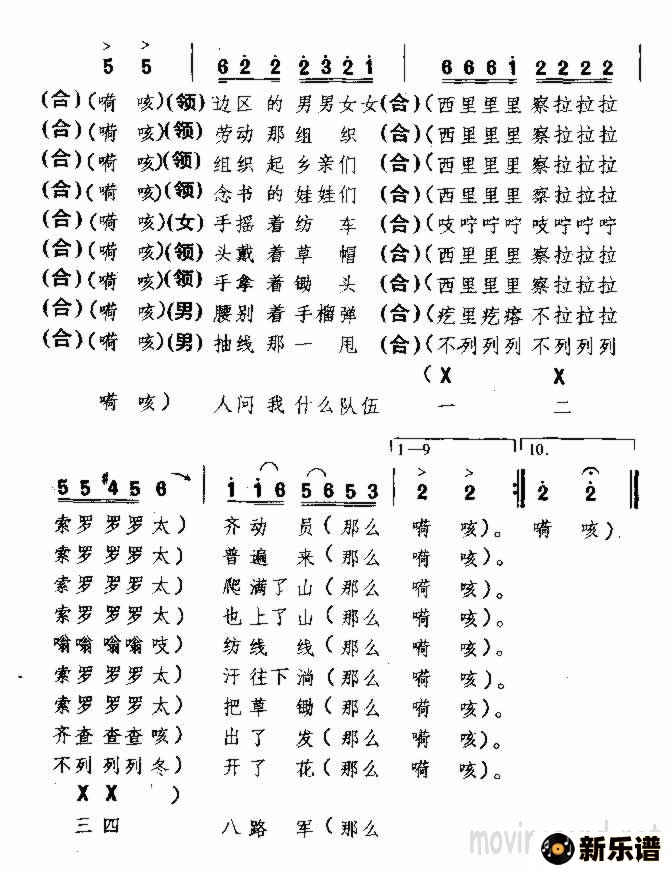 5 5 | 6 2 2 2 3 2 1 | 6 6 6 1 2 2 2 2
(合)(嗬 咳)(领)边区的男男女女(合)(西里里里 察拉拉拉
(合)(嗬 咳)(领)劳动那组 织 (合)(西里里里 察拉拉拉
(合)(嗬 咳)(领)组织起乡亲们 (合)(西里里里 察拉拉拉
(合)(嗬 咳)(领)念书的娃娃们 (合)(西里里里 察拉拉拉
(合)(嗬 咳)(女)手摇着纺 车 (合)(吱咛咛咛 吱咛咛咛
(合)(嗬 咳)(领)头戴着草 帽 (合)(西里里里 察拉拉拉
(合)(嗬 咳)(领)手拿着锄 头 (合)(西里里里 察拉拉拉
(合)(嗬 咳)(男)腰别着手榴弹 (合)(疙里疙瘩 不拉拉拉
(合)(嗬 咳)(男)抽线那一 甩 (合)(不列列列 不列列列
(X X
嗬 咳) 人问我什么队伍 一 二
1—9 10.
5 5 #4 5 6 | 1 1 6 5 6 5 3 | 2 2 :‖ 2 2 ‖
索罗罗罗太) 齐动 员(那么 嗬 咳)。 嗬 咳)
索罗罗罗太) 普遍 来(那么 嗬 咳)。
索罗罗罗太) 爬满了山(那么 嗬 咳)。
索罗罗罗太) 也上了山(那么 嗬 咳)。
嗡嗡嗡嗡吱) 纺线 线(那么 嗬 咳)。
索罗罗罗太) 汗往下淌(那么 嗬 咳)。
索罗罗罗太) 把草 锄(那么 嗬 咳)。
齐查查查咳) 出了 发(那么 嗬 咳)。
不列列列冬) 开了 花(那么 嗬 咳)。
X X )
三四 八路 军(那么
新乐谱